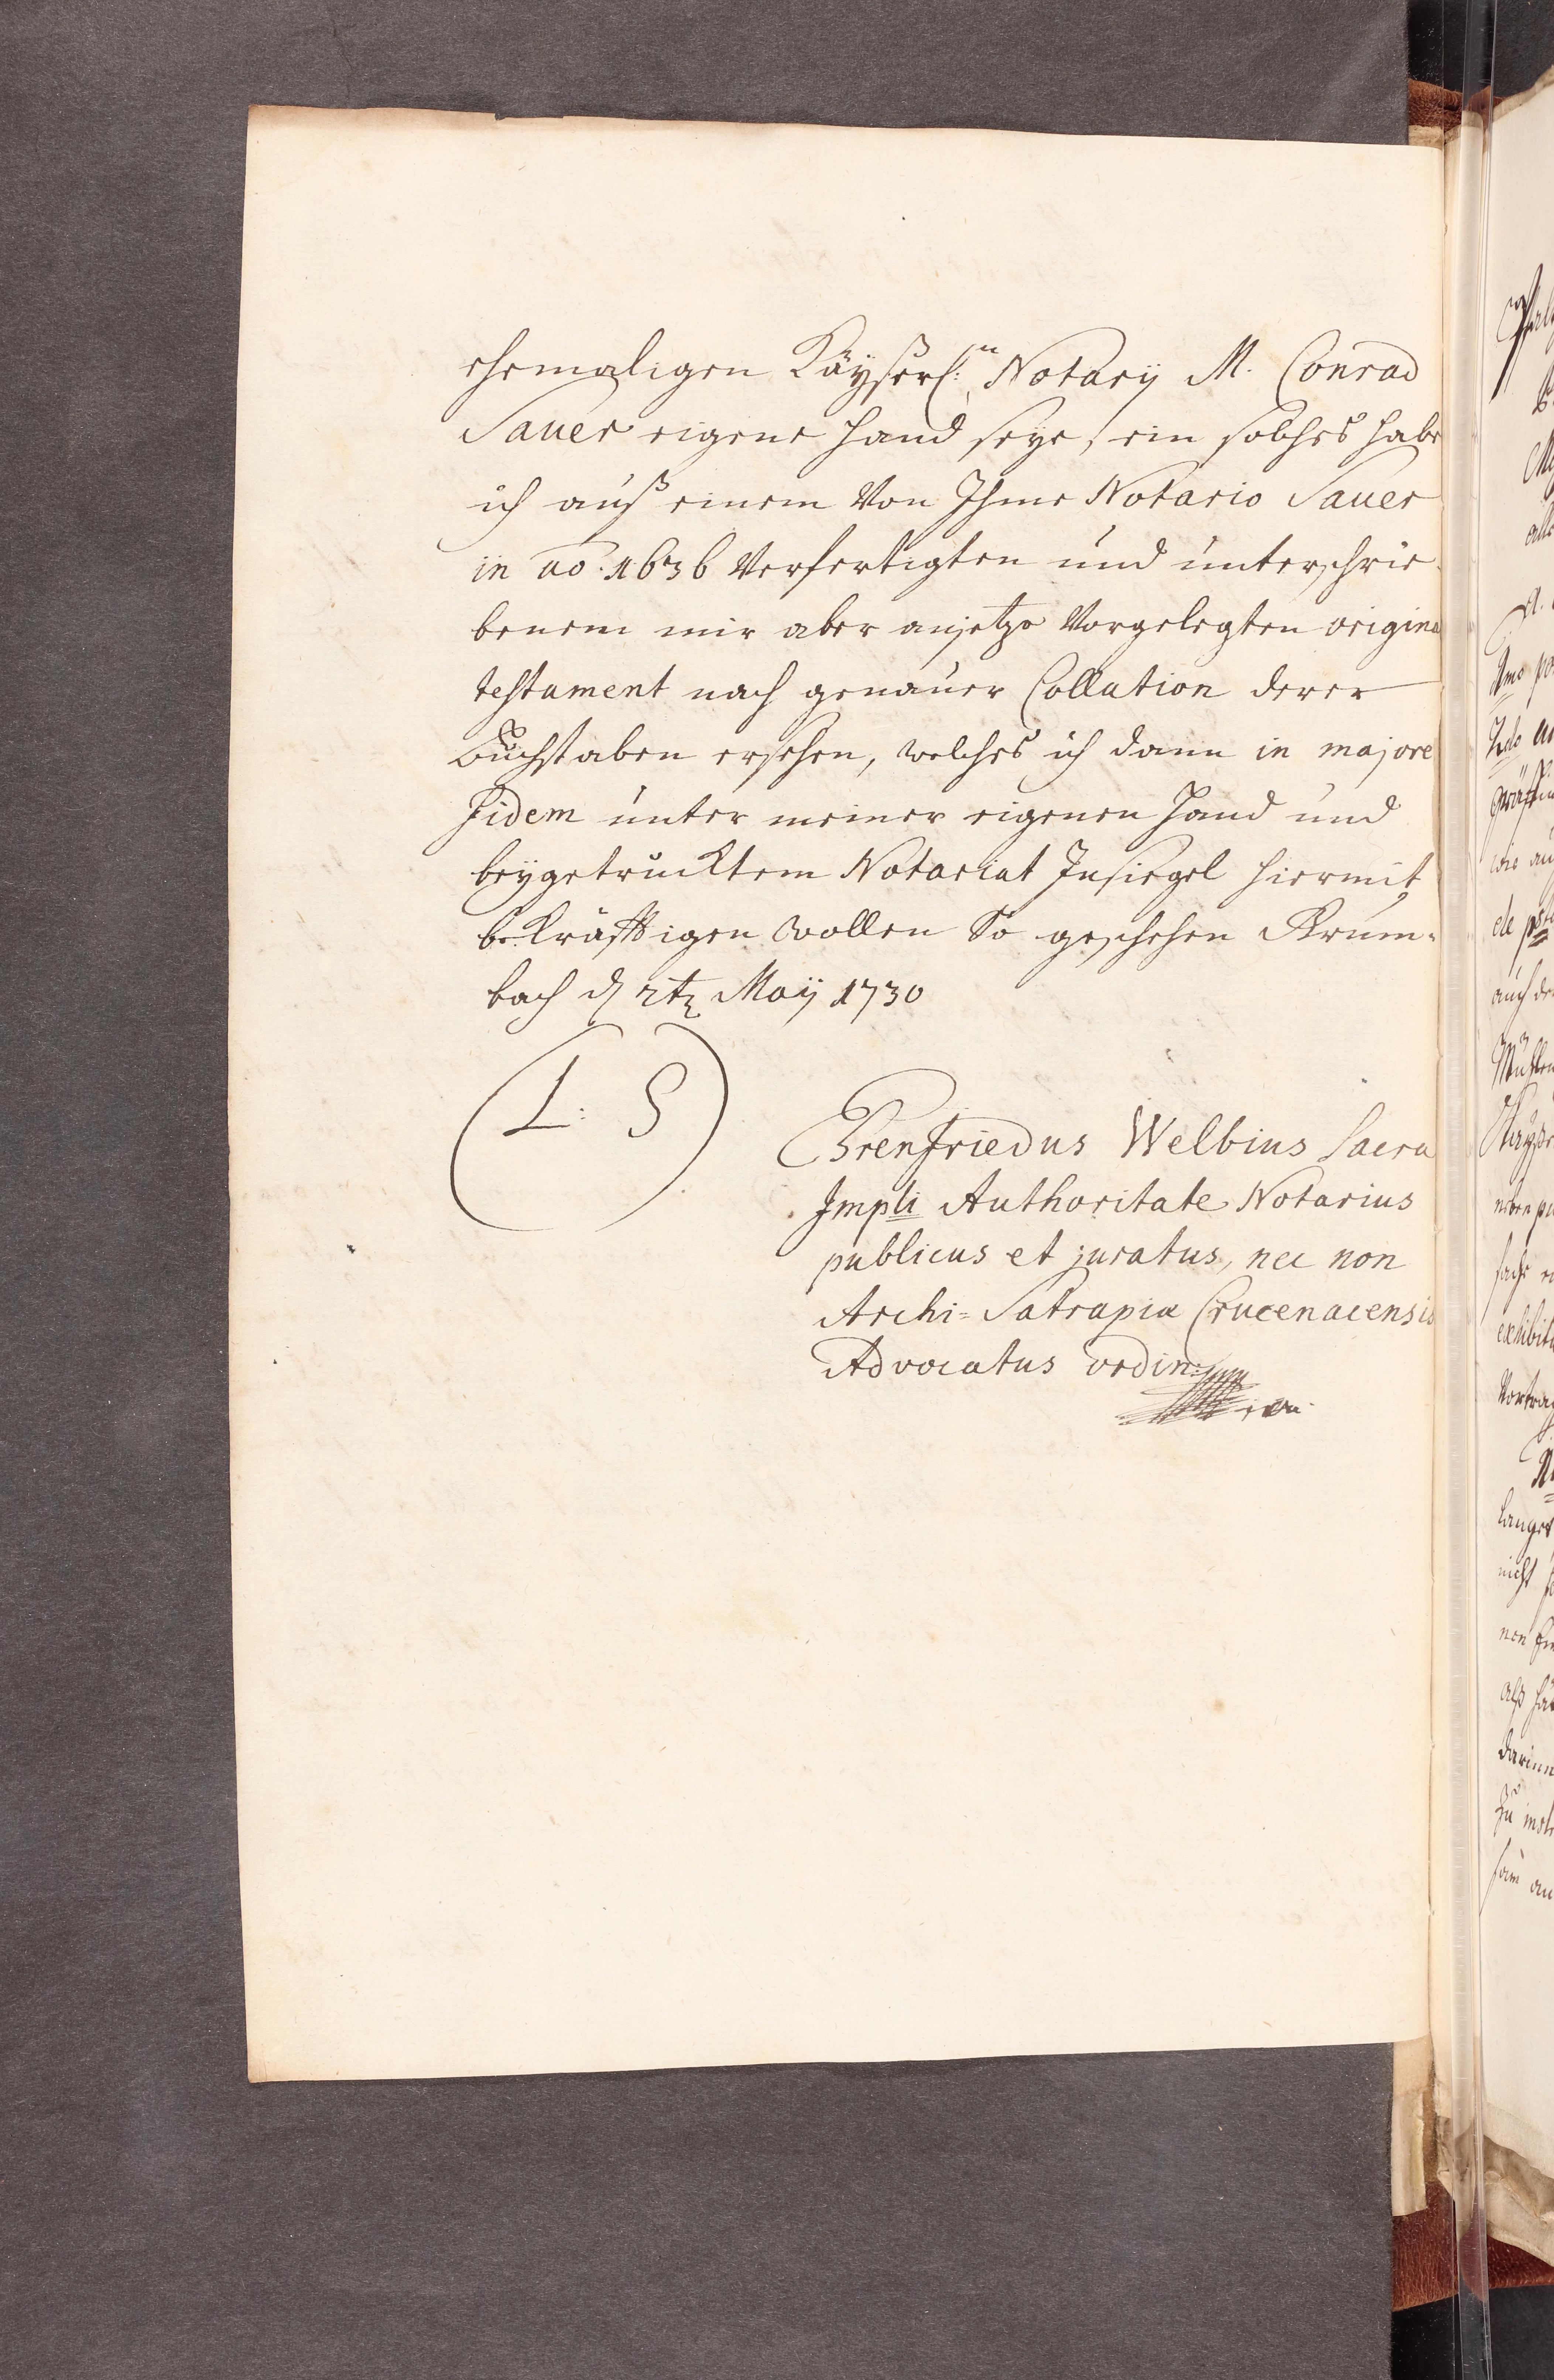 ehemaligen Käyßerl:en Notarÿ M. Conrad
Sauer eigene Hand seÿe, ein solches habe
ich auß einem Von Ihme Notario Sauer
in ao. 1636 Verfertigten und unterschrie-
benem mir aber anjetzo Vorgelegten origina
testament nach genauer Collation derer
Buchstaben ersehen, welches ich dann in majore
fidem unter meiner eigenen Hand und
beÿgetrucktem Notariat Insiegel hiermit
bekräfftigen wollen So geschehen Krum-
bach d 2t Maÿ 1730
(L: S)
Erenfriedus Welbius Sacra
Impli Authoritate Notarius
publicus et juratus, nec non
Archi-Satrapiæ Crucenacensis
Advocatus ordin: